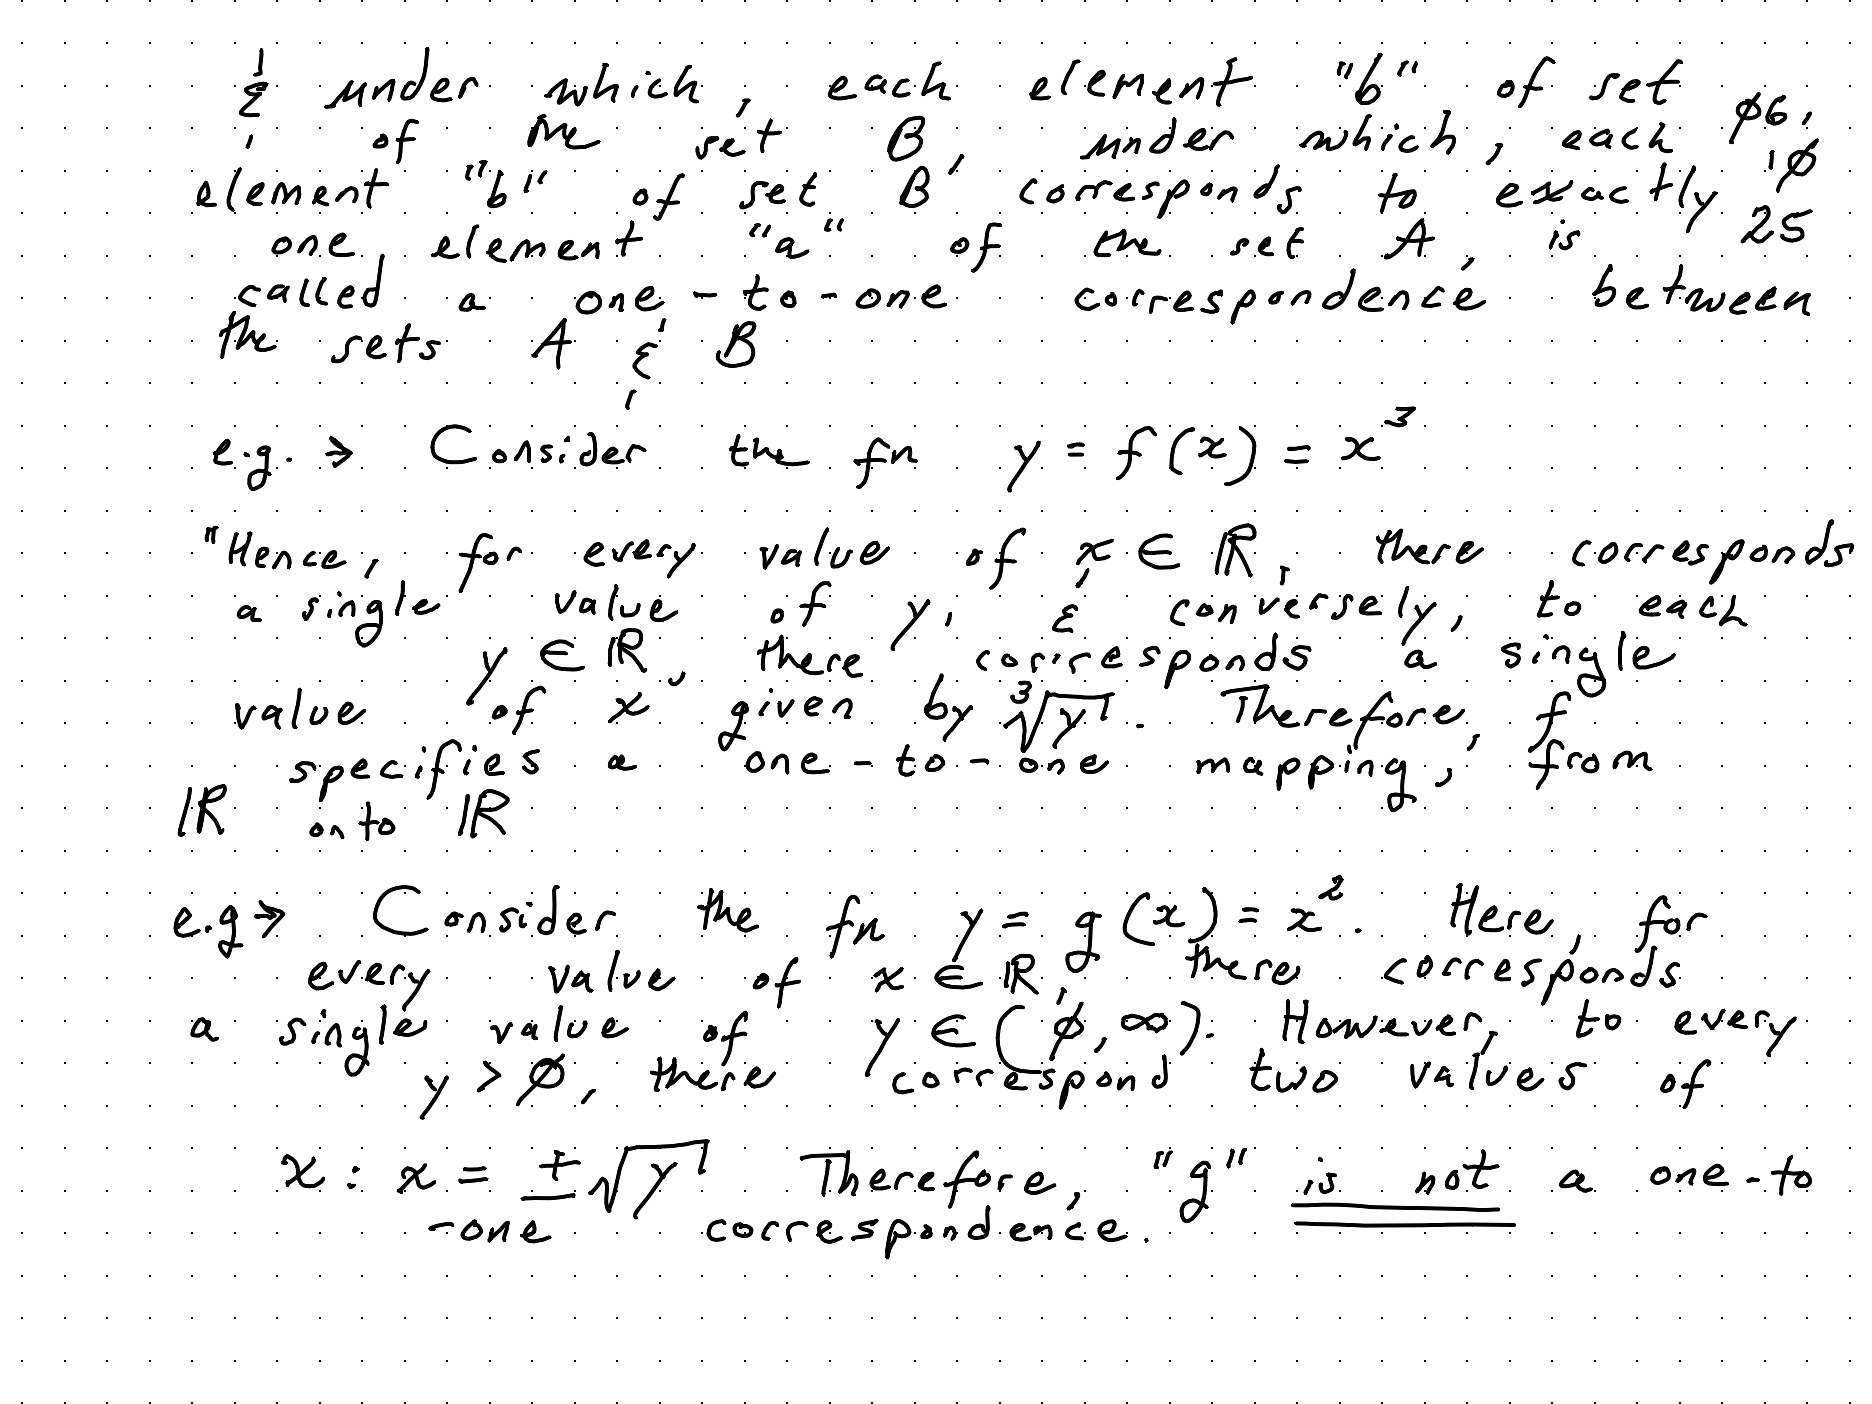 & under which, each element "b" of set
of the set B, under which, each
element "b" of set B corresponds to exactly
one element "a" of the set A, is
called a one-to-one correspondence between
the sets A & B
φ6,
10
25
e.g. → Consider the fn y = f(x) = x³
"Hence, for every value of x ∈ ℝ, there corresponds
a single value of y, & conversely, to each
y ∈ ℝ, there corresponds a single
value of x given by ∛y. Therefore, f
specifies a one-to-one mapping, from
ℝ onto ℝ
e.g → Consider the fn y = g(x) = x². Here, for
every value of x ∈ ℝ, there corresponds
a single value of y ∈ (φ, ∞). However, to every
y > φ, there correspond two values of
x : x = ±√y Therefore, "g" is not a one-to
-one correspondence.